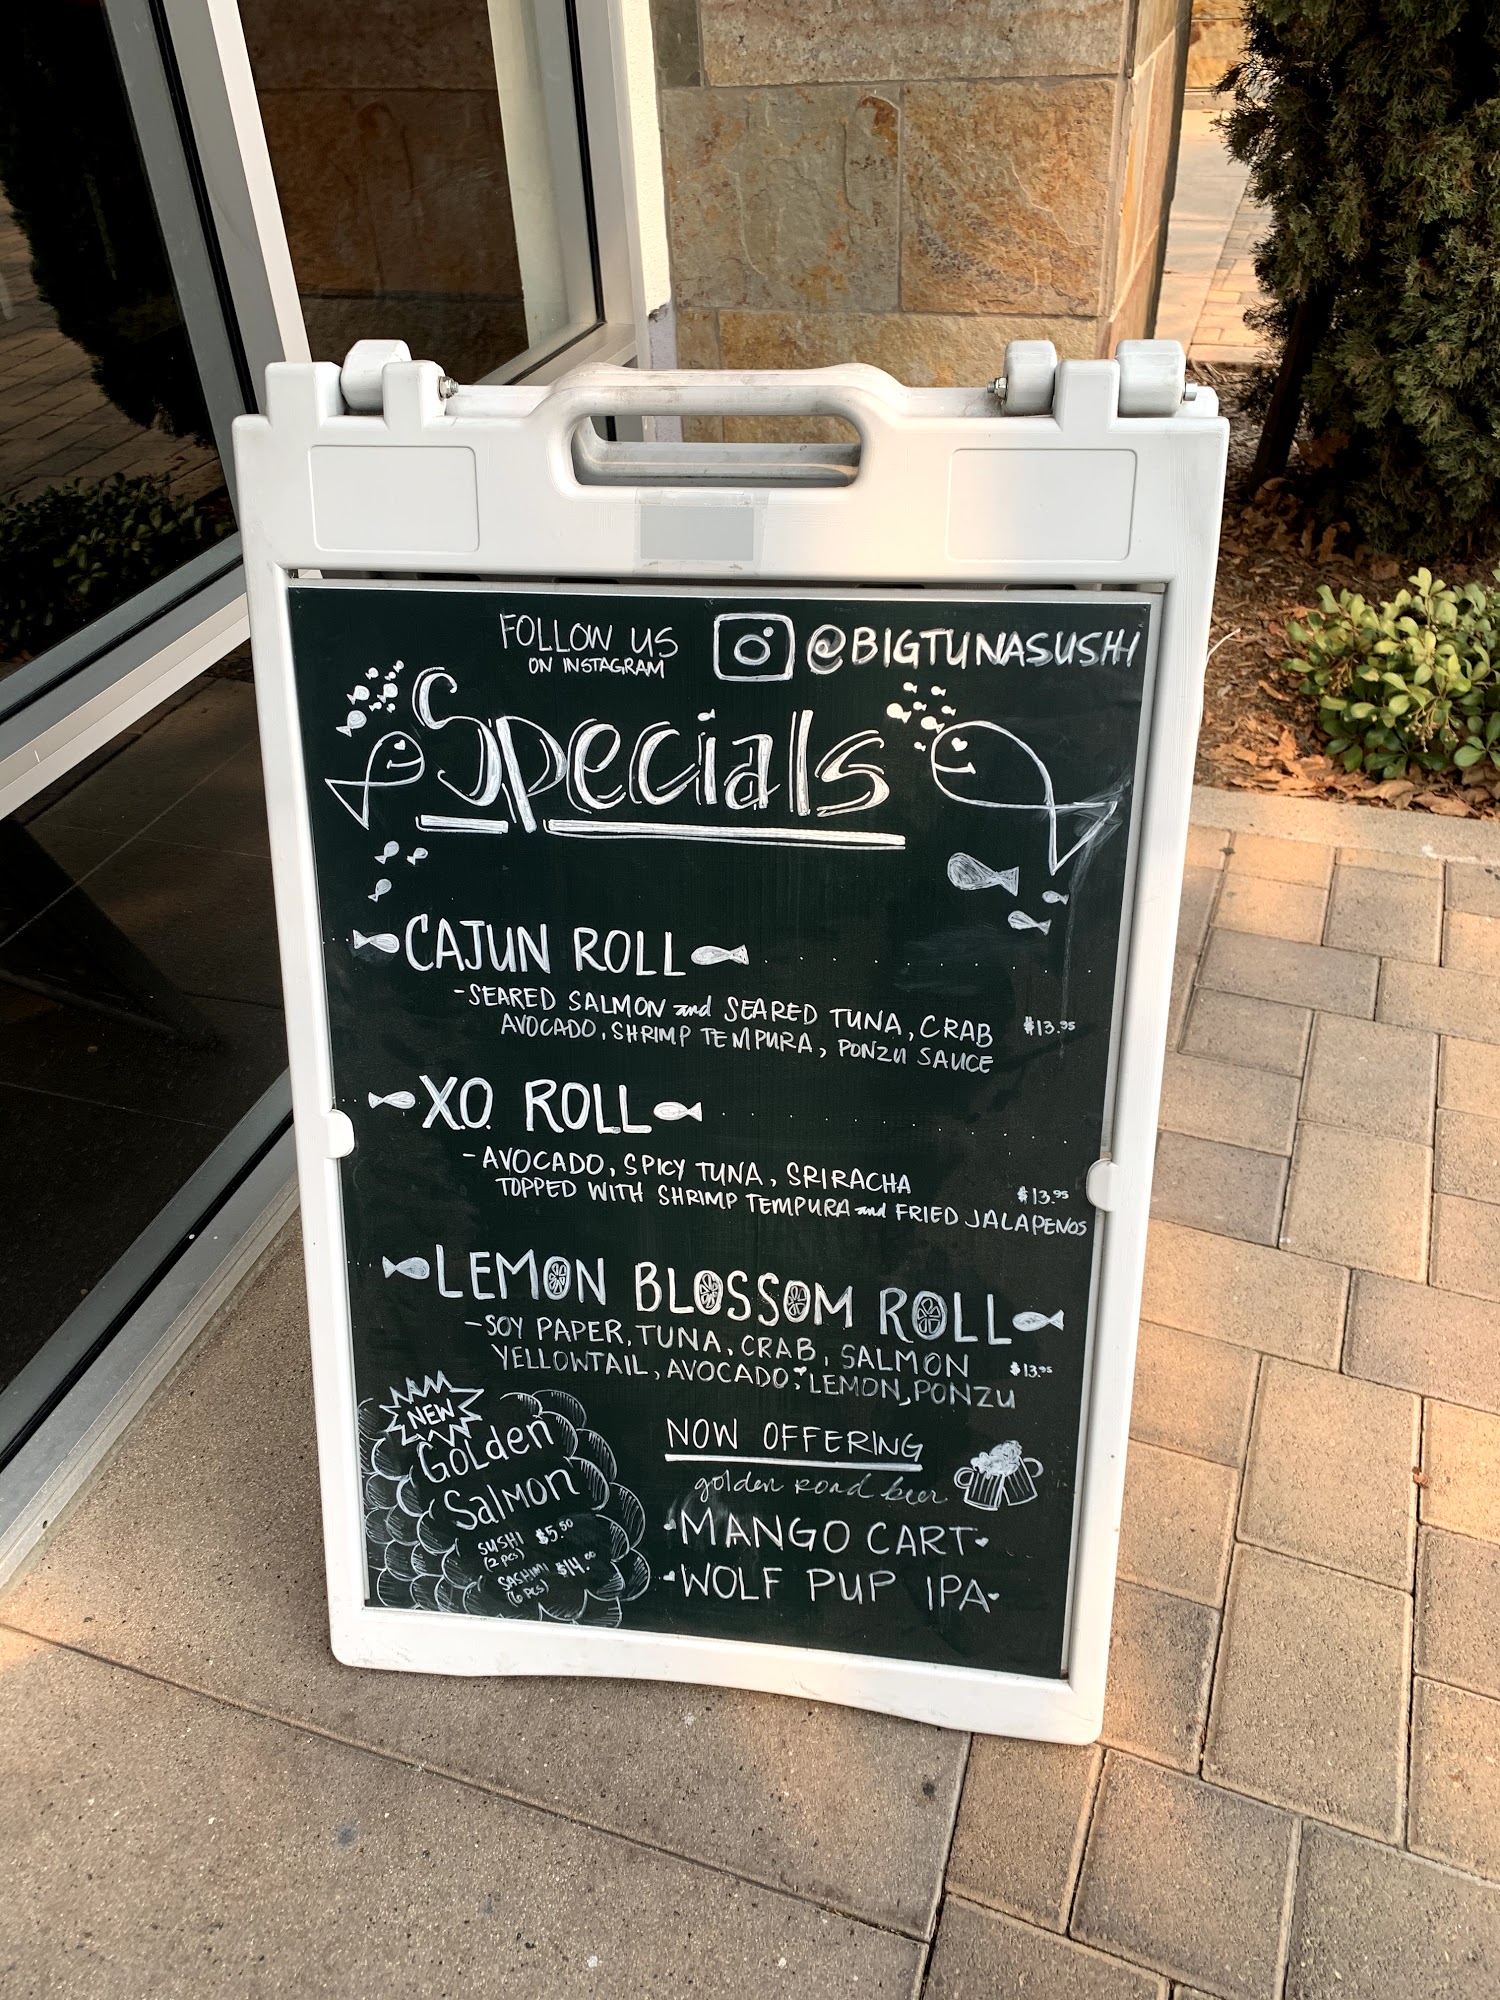 FOLLOW US
ON INSTAGRAM
@BIGTUNASUSHI
Specials
CAJUN ROLL
-SEARED SALMON and SEARED TUNA, CRAB
AVOCADO, SHRIMP TEMPURA, PONZU SAUCE
$13.95
XO. ROLL
-AVOCADO, SPICY TUNA, SRIRACHA
TOPPED WITH SHRIMP TEMPURA and FRIED JALAPENOS
$13.95
LEMON BLOSSOM ROLL
-SOY PAPER, TUNA, CRAB, SALMON
YELLOWTAIL, AVOCADO, LEMON, PONZU
$13.95
NEW
Golden
Salmon
SUSHI $5.50
(2 pcs)
SASHIMI $14.00
(6 pcs)
NOW OFFERING
golden road beer
•MANGO CART•
•WOLF PUP IPA•